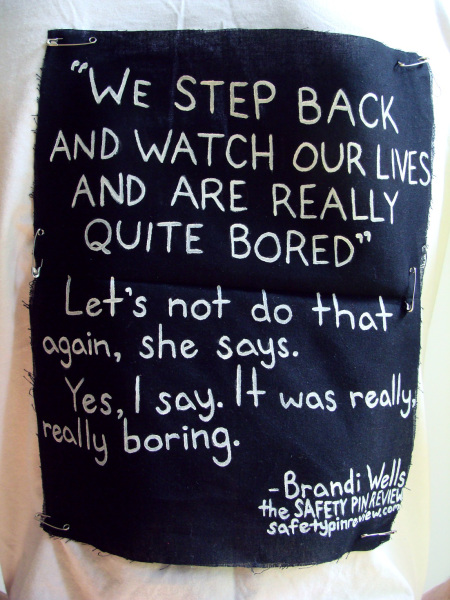 "WE STEP BACK
AND WATCH OUR LIVES
AND ARE REALLY
QUITE BORED"
Let's not do that
again, she says.
Yes, I say. It was really,
really boring.
-Brandi Wells
the SAFETY PIN REVIEW
safetypinreview.com